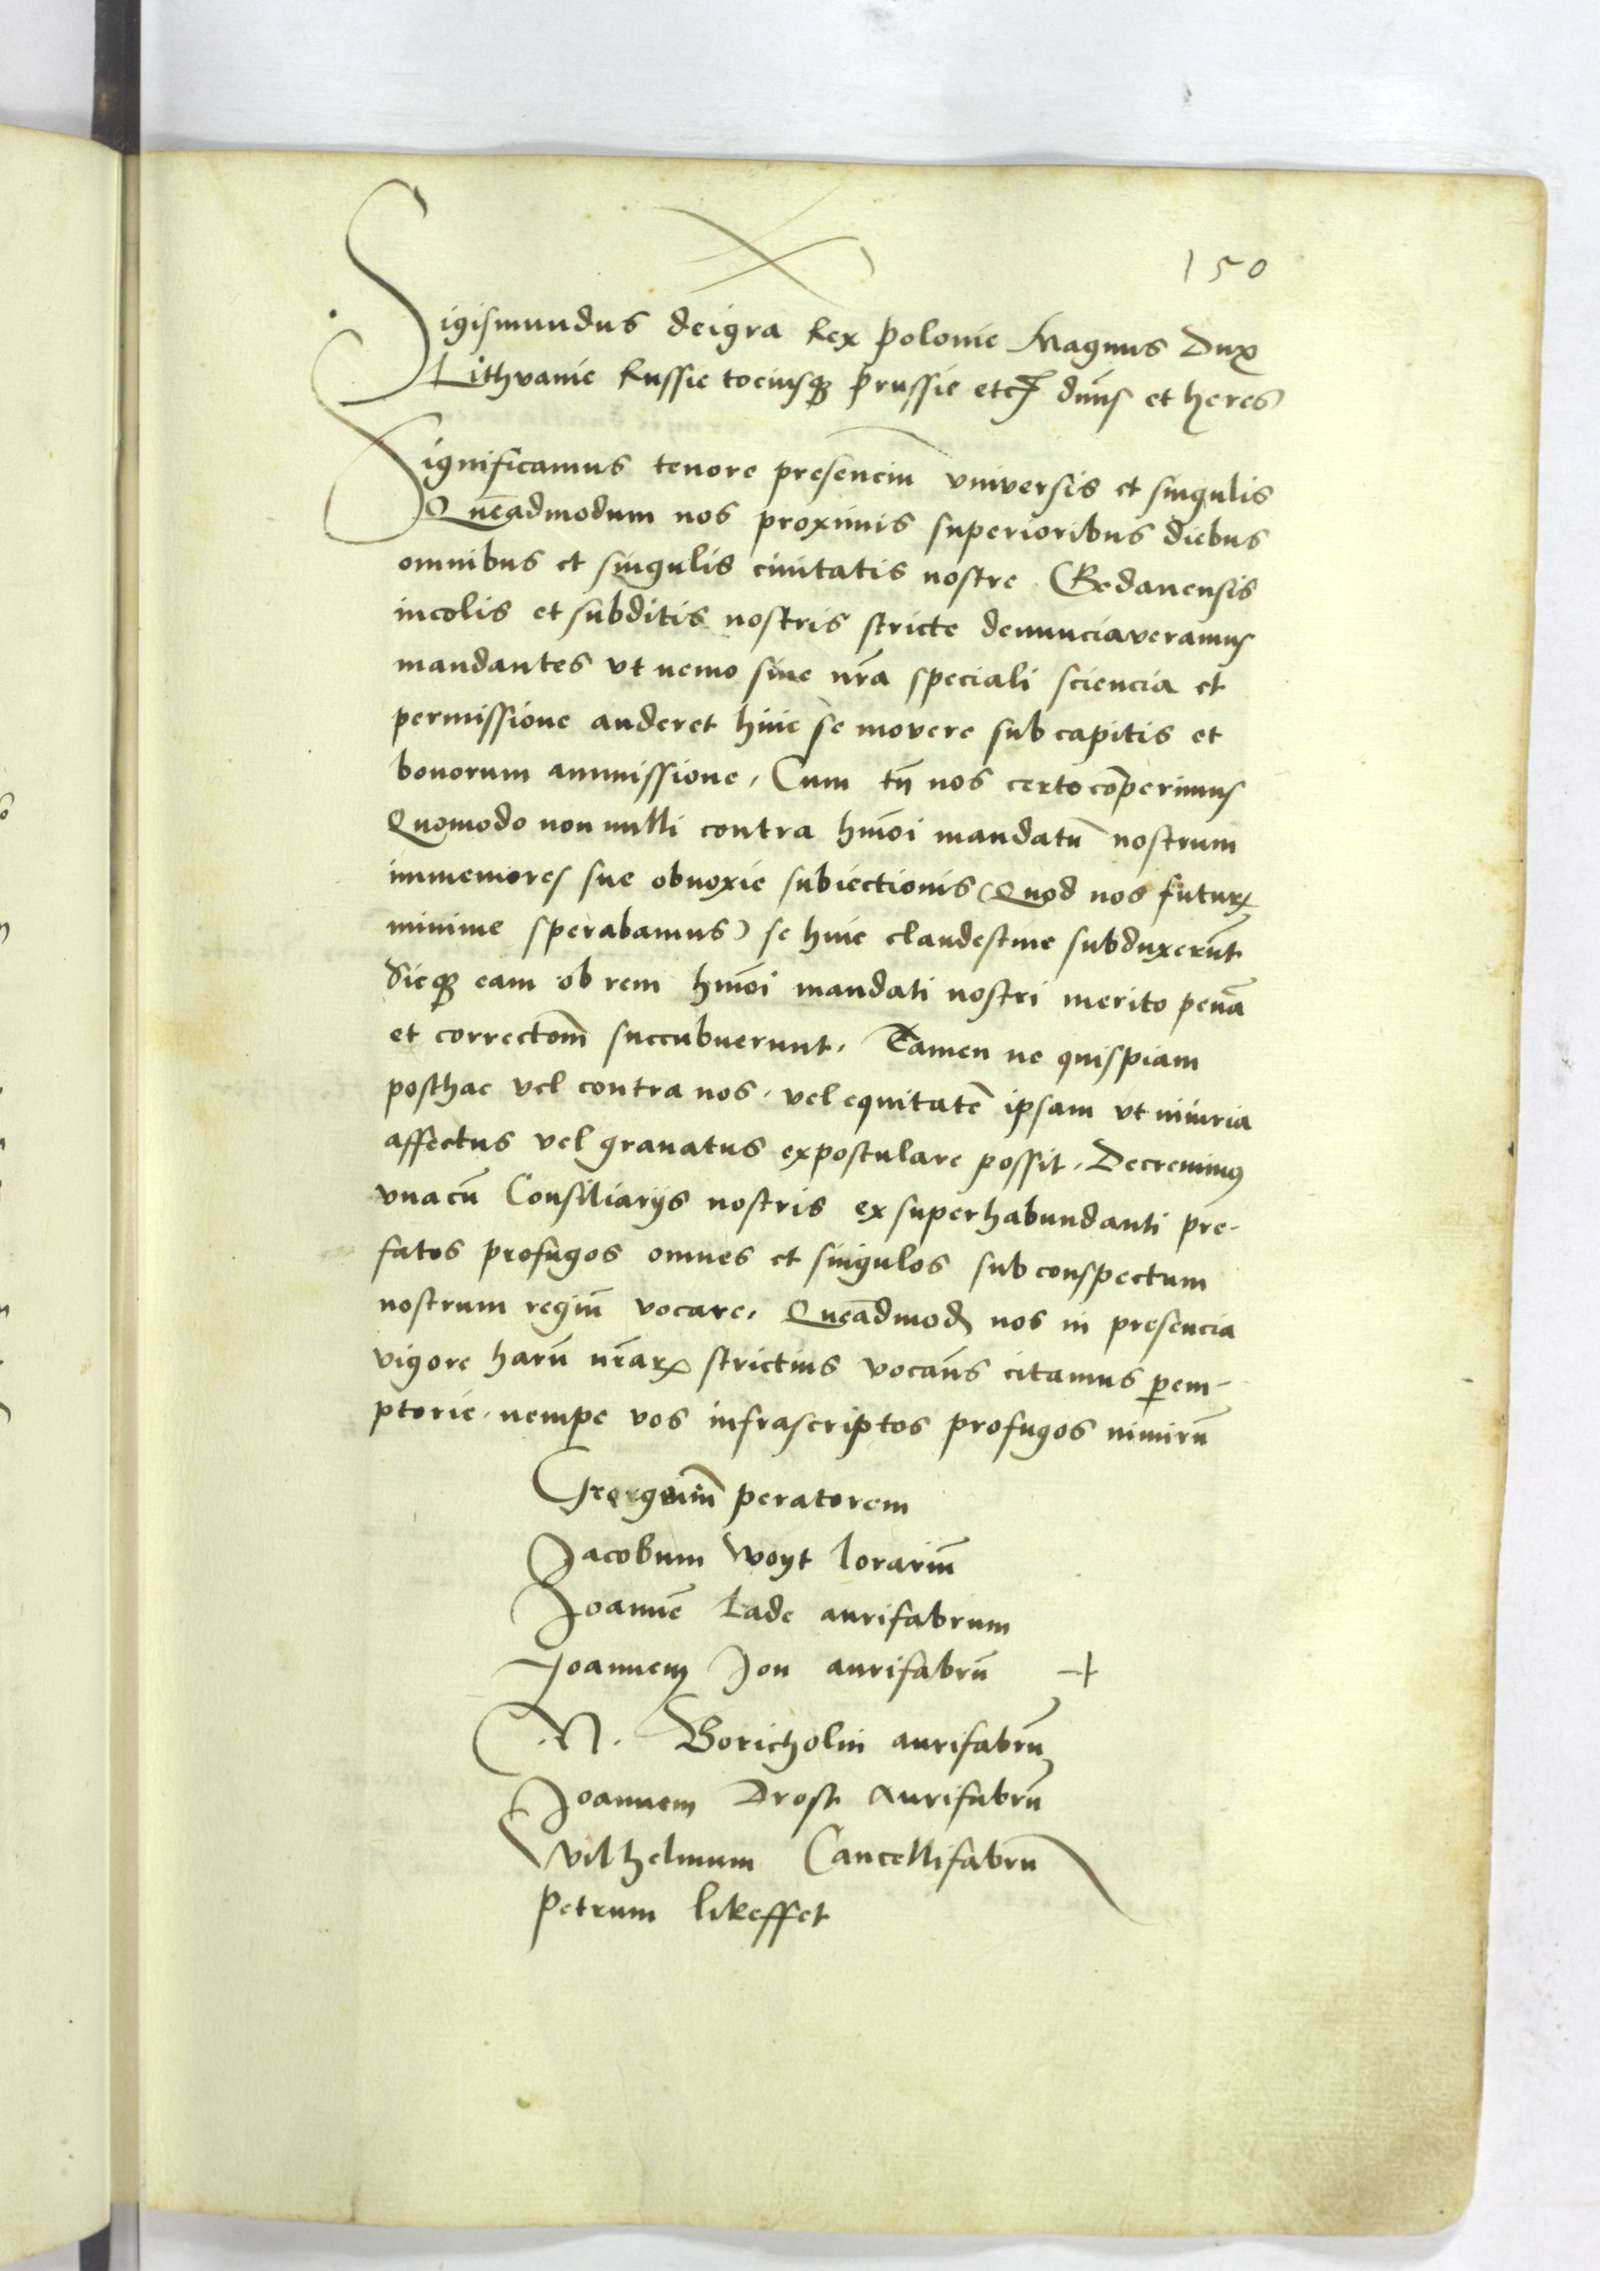 150
Sigismundus deigra Rex Polonie Magnus Dux
Lithvanie Russie tociusq₃ Prussie etc dn̄s et heres
Significamus tenore presenciu vniversis et singulis
Quēadmodum nos proximis superioribus diebus
omnibus et singulis civitatis nostre Gedanensis
incolis et subditis nostris stricte denunciaveramus
mandantes vt nemo sine nr̄a speciali sciencia et
permissione auderet hinc se movere sub capitis et
bonorum ammissione, Cum tn̄ nos certo cōperimus
Quomodo non nulli contra hmōi mandatū nostrum
immemores sue obnoxie subiectionis (Quod nos futurꝝ
minime sperabamus) se hinc clandestine subduxerūt
Sicq₃ eam ob rem hmōi mandati nostri merito penā
et correctom̄ succubuerunt, Tamen ne quispiam
posthac vel contra nos, vel equitatē ipsam vt iniuria
affectus vel gravatus expostulare possit, Decrevimus
vnacū Consiliarijs nostris ex superhabundanti pre-
fatos profugos omnes et singulos sub conspectum
nostrum regiū vocare, Quēadmod nos in presencia
vigore harū nr̄arꝝ strictius vocan̄s citamus perem-
ptorie, nempe vos infrascriptos profugos nimirū
Georgium̄ peratorem
Jacobum Woyt lorariū
Joannē Lade aurifabrum
Joannem Jon aurifabrū +
.N. Boricholm aurifabrū
Joannem Drost Aurifabrū
Wilhelmum Cancellifabrū
Petrum likeffet